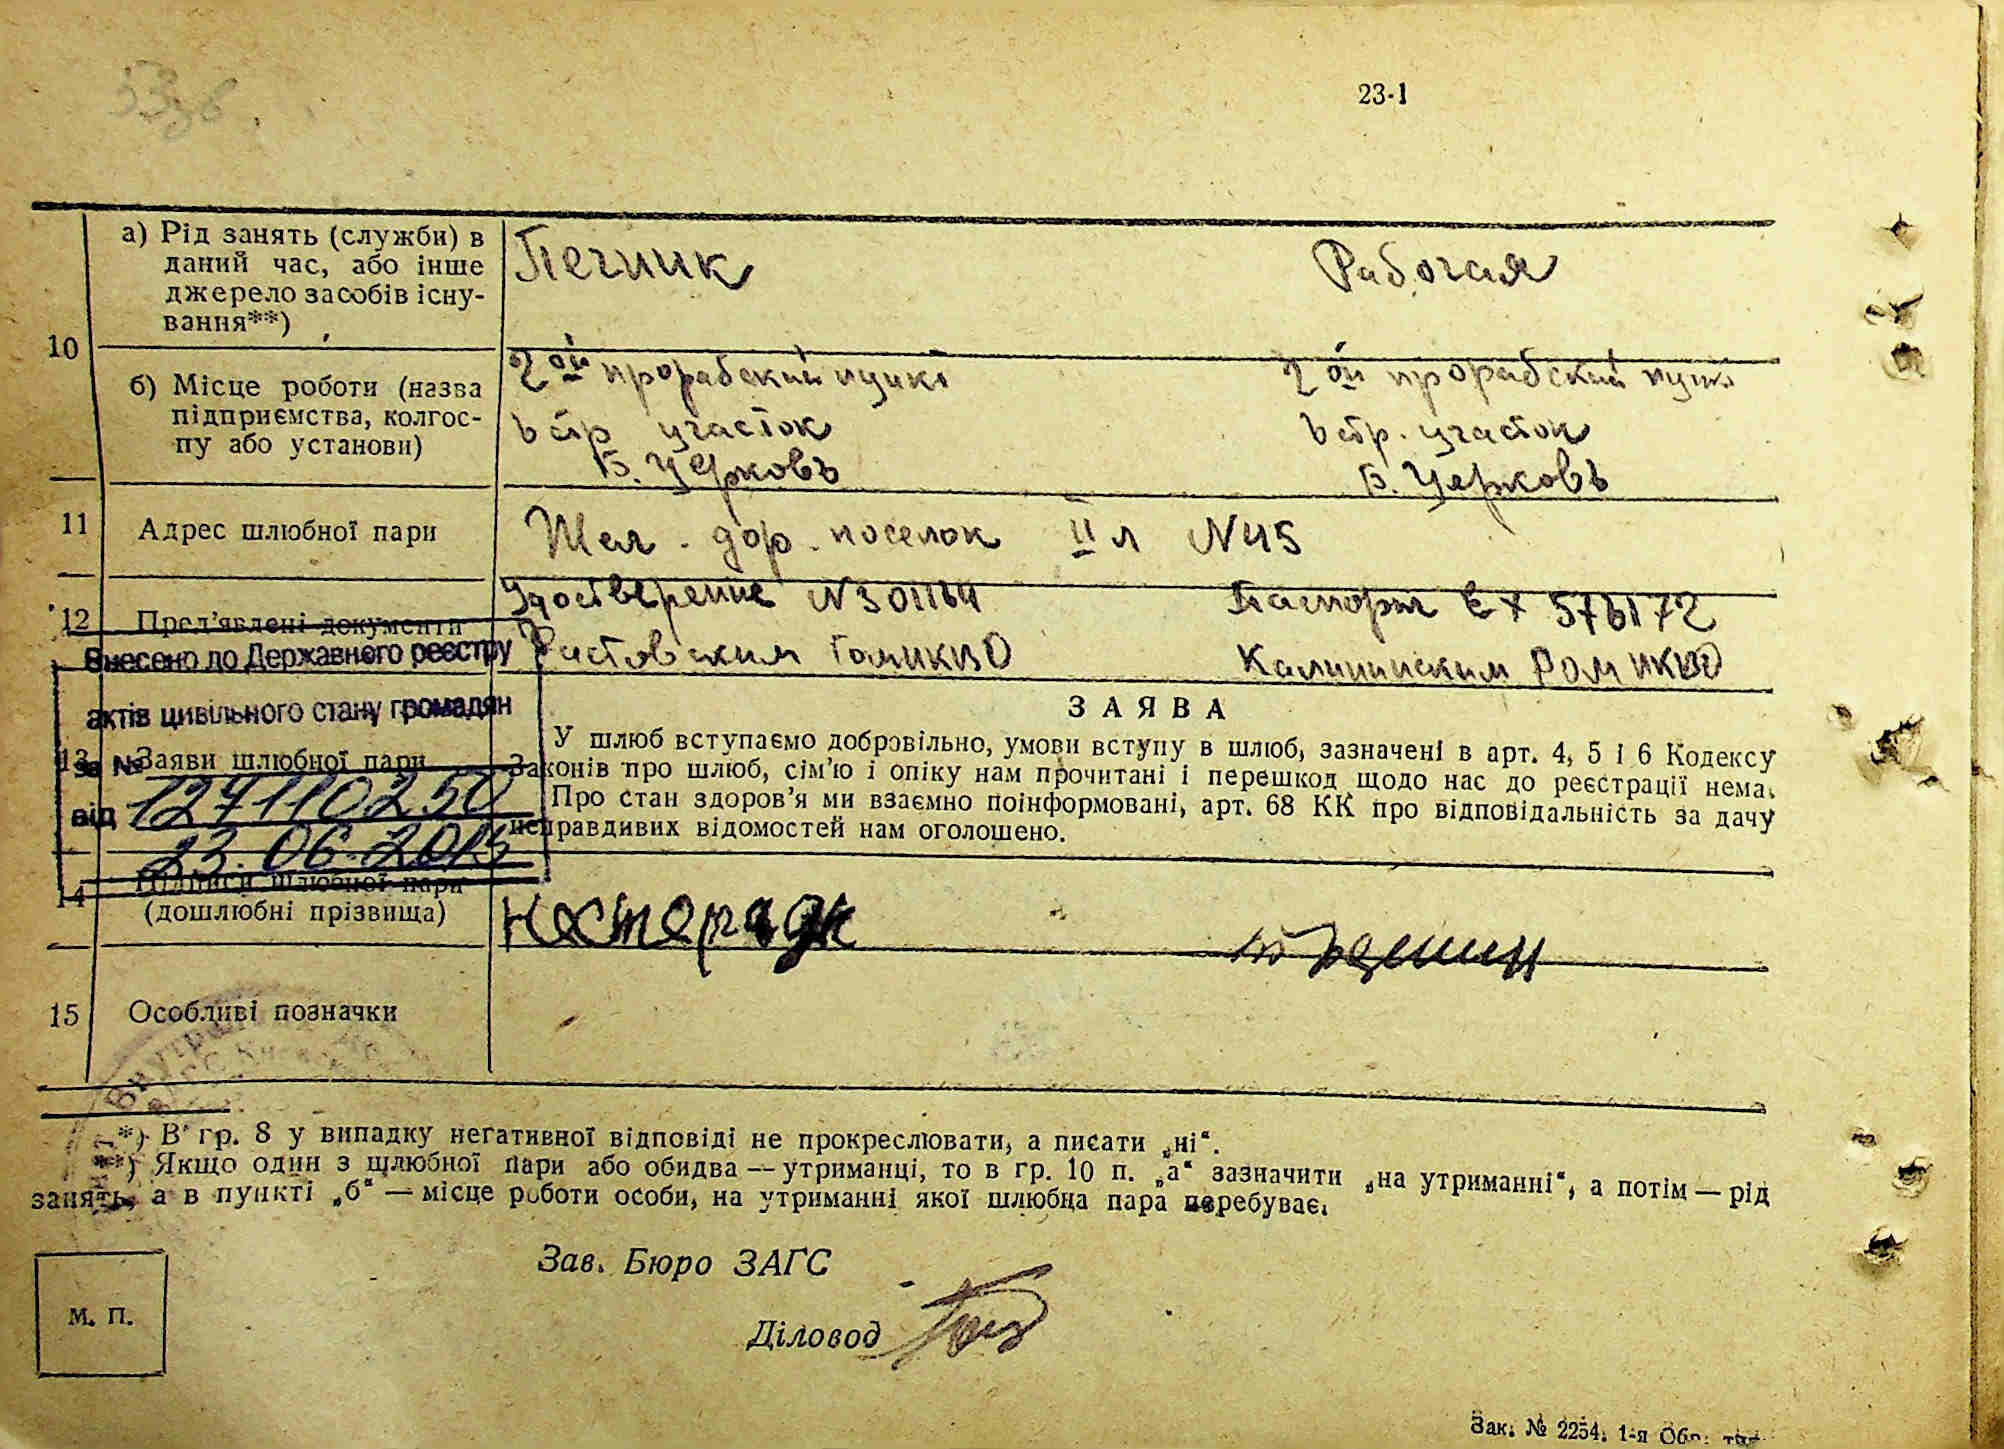 23-1
10
а) Рід занять (служби) в
даний час, або інше
джерело засобів існу-
вання**)
Печник
Рабочая
б) Місце роботи (назва
підприємства, колгос-
пу або установи)
2 ой прорабский пункт
6 стр участок
Б. Церковь
2 ой прорабский пункт
6 стр. участок
Б. Церковь
11
Адрес шлюбної пари
Жел. дор. поселок II л N 45
12
Пред'явлені документи
Удостверение N 301164
Ростовским
Паспорт
Калининским
Внесено до Державного реєстру
актів цивільного стану громадян
за №
від 127110250
23.06.2015
13
Заяви шлюбної пари
ЗАЯВА
У шлюб вступаємо добровільно, умови вступу в шлюб, зазначені в арт. 4, 5 і 6 Кодексу
Законів про шлюб, сім'ю і опіку нам прочитані і перешкод щодо нас до реєстрації нема.
Про стан здоров'я ми взаємно поінформовані, арт. 68 КК про відповідальність за дачу
неправдивих відомостей нам оголошено.
14
Підписи шлюбної пари
(дошлюбні прізвища)
15
Особливі позначки
*) В гр. 8 у випадку негативної відповіді не прокреслювати, а писати „ні“.
**) Якщо один з шлюбної пари або обидва — утриманці, то в гр. 10 п. „а“ зазначити „на утриманні“, а потім — рід
занять, а в пункті „б“ — місце роботи особи, на утриманні якої шлюбна пара перебуває.
Зав. Бюро ЗАГС
Діловод
М. П.
Зак. № 2254. 1-я Обр.